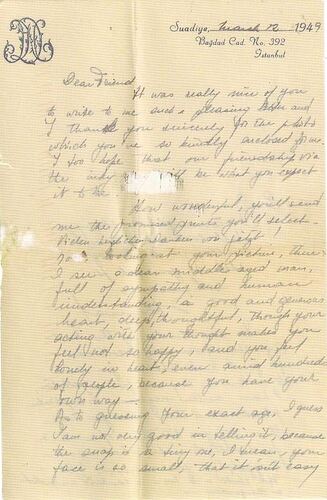 Suadiye, March 12 1949
Bagdad Cad. No. 392
Istanbul
Dear Friend,
It was really nice of you
to write to me such a pleasing letter and
I thank you sincerely for the photo
which you so kindly enclosed for me.
I too hope that our friendship via
the will be what you expect
it to be
How wonderful, you'll send
me the promised you'll select.
Vielen
Now looking at your picture, there
I see a dear middle aged man,
full of sympathy and human
understanding, a good and generous
heart, deep, thoughtful, though your
acting with your thought makes you
feel not so happy, and you feel
lonely in heart, even amid hundreds
of people, because you have your
own way —.
As to guessing your exact age, I guess
I am not very good in telling it, because
the snap is a tiny one, I mean, your
face is so small, that it isn't easy